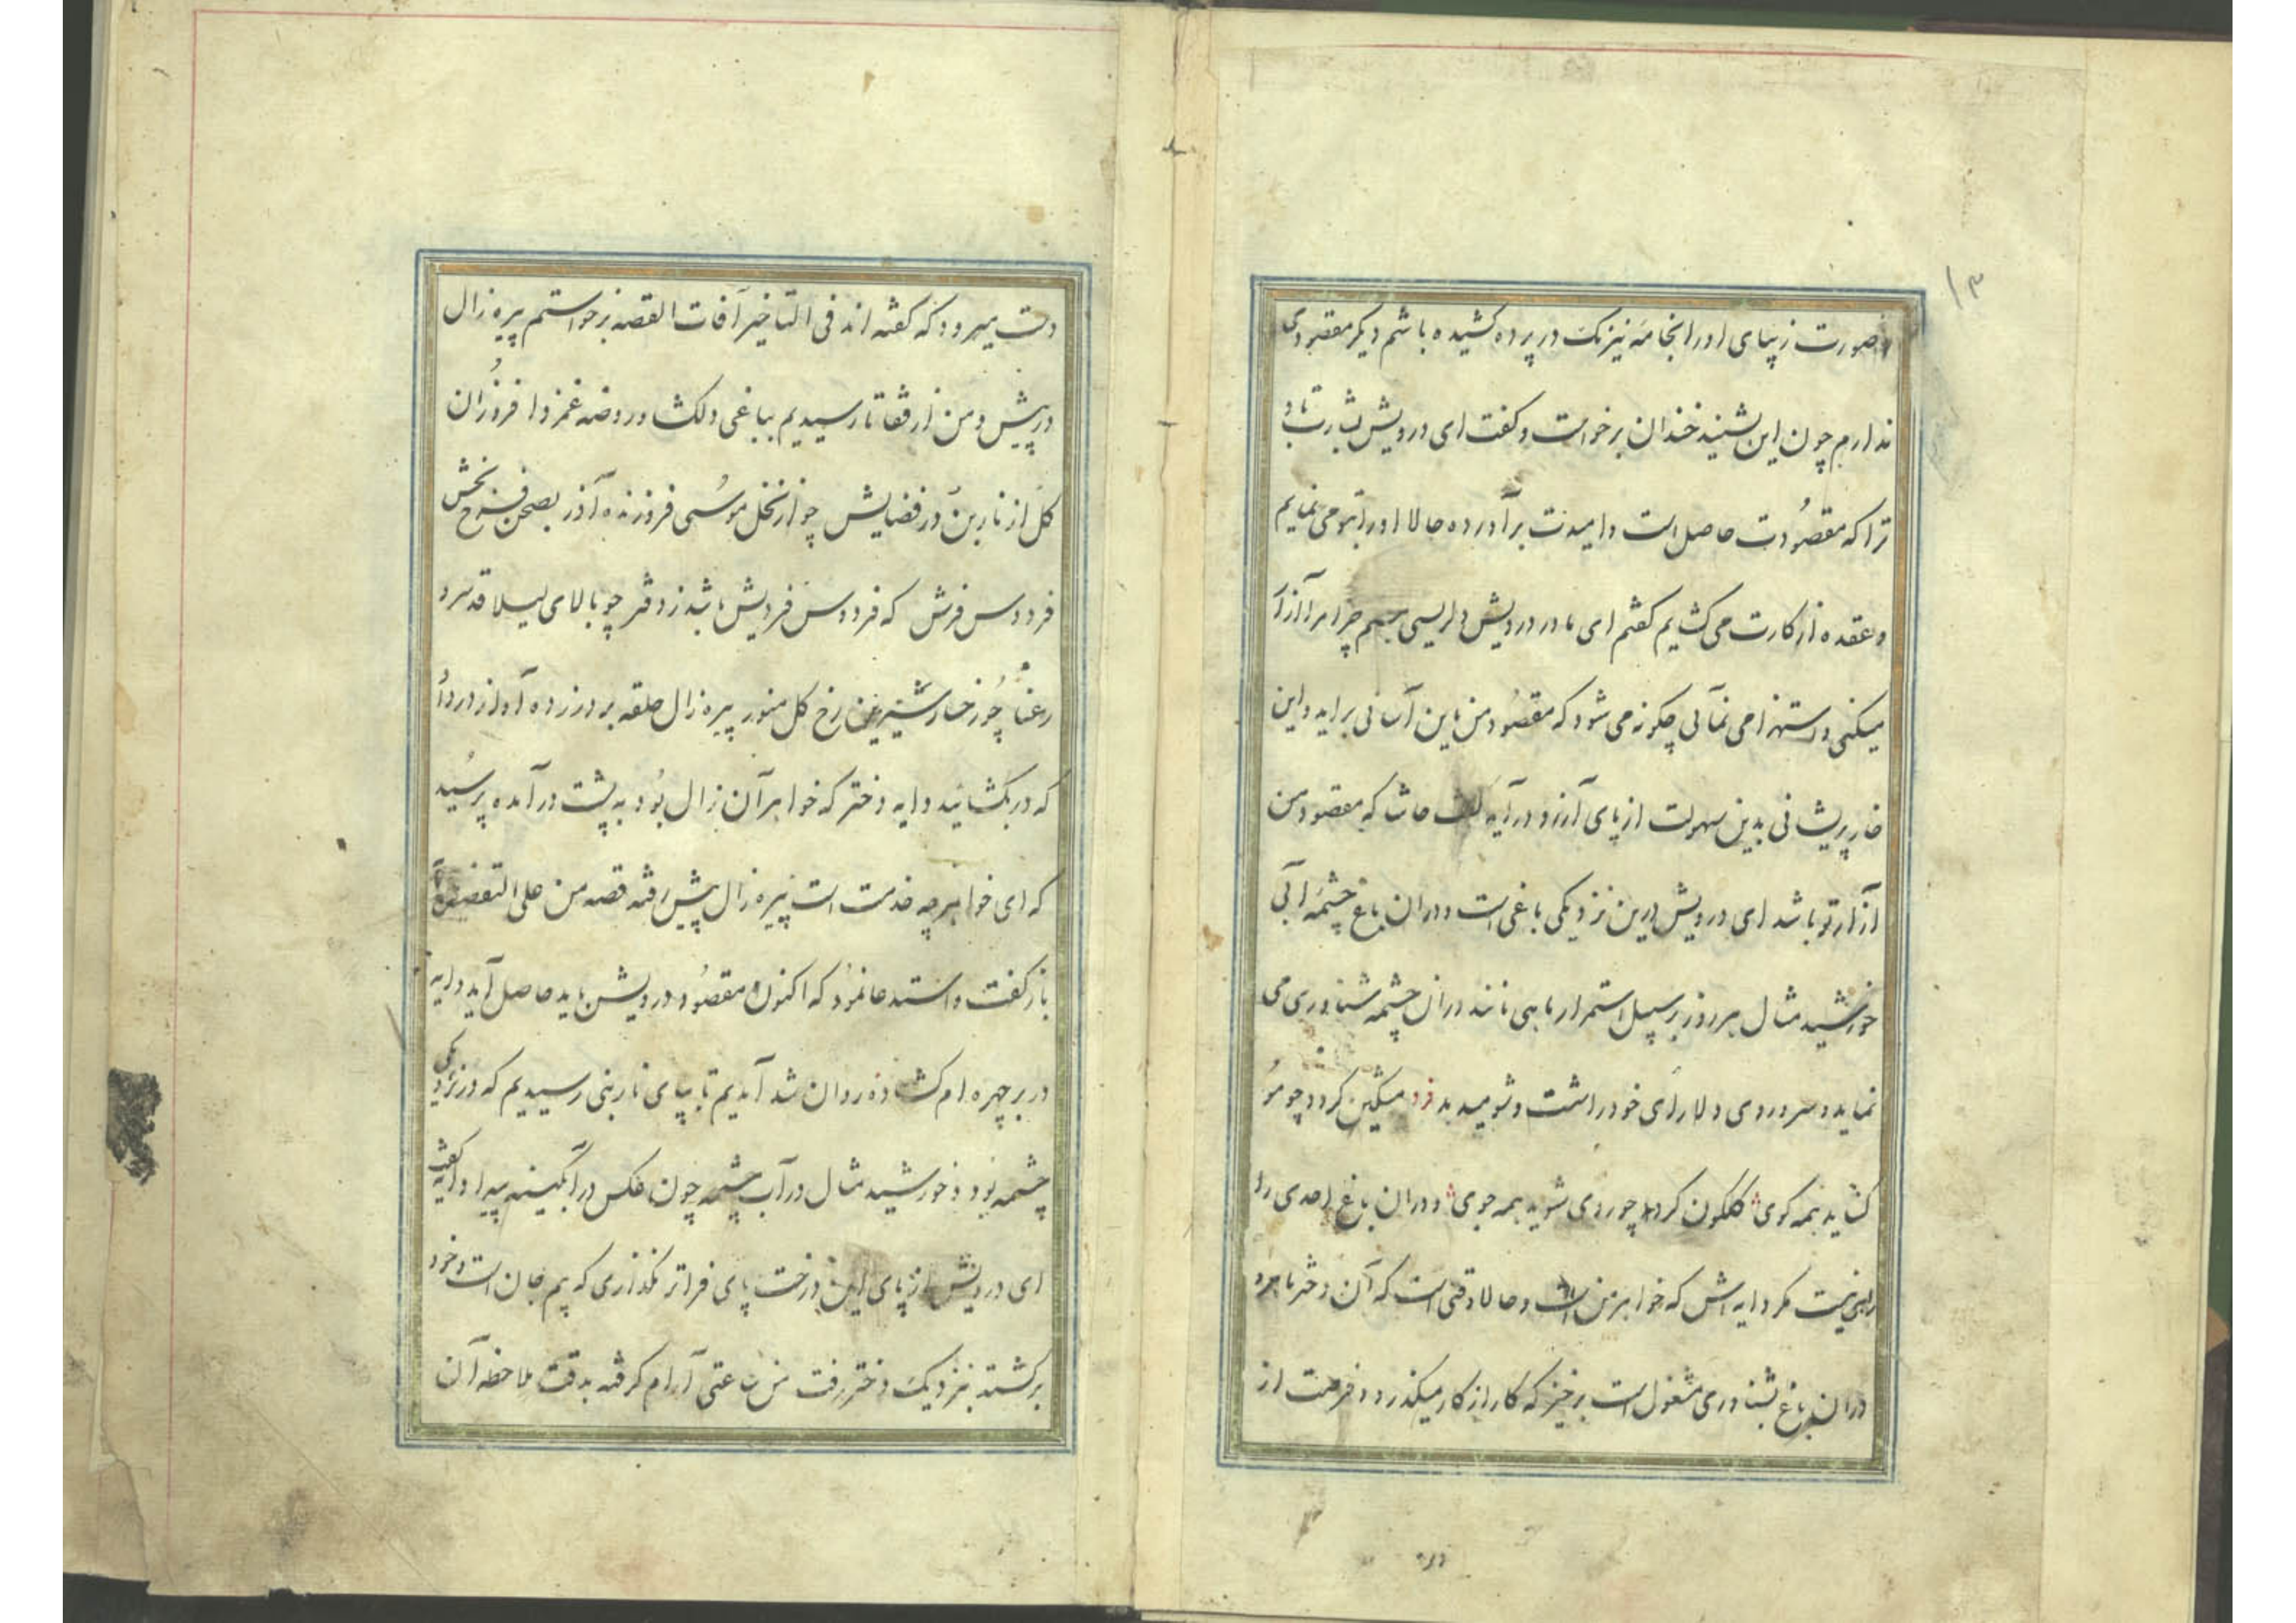 ۱۳
و صورت زیبای او را بخامه نیرنگ در پرده کشیده باشم دیگر مقصودی
ندارم چون این بشنید خندان برخواست و گفت ای درویش بشارت باد
ترا که مقصُودت حاصل است و امیدت برآورده حالا او را بتو می نمایم
و عقده از کارت می کشایم گفتم ای مادر درویش دلریسی چرا مرا آزار
میکنی و استهزا می نمآئی چکونه می شود که مقصُود من باین آسانی براید و این
خار پریشانی بدین سهولت از پای آرزو درآید گفت حاشا که مقصود من
آزار تو باشد ای درویش درین نزدیکی باغی است و دران باغ چشمه آبی
خورشید مثال هر روز بر سبیل استمرار ماهی مانند دران چشمه شناوری می
نماید و سر و روی دلارای خود را شست و شو میدهد فرد مشکین کردد چو مُو
کشاید همه کوی کلکون کردد چو روی شوید همه جوی و دران باغ احدی را
راهی نیست مکر دایه اش که خواهر من است و حالا وقتی است که آن دختر ماهرو
دران باغ بشناوری مشغول است برخیز که کار از کار میکذرد و فرصت از
دست میرود که کفته اند فی التاخیر آفات القصه برخواستم پیره زال
در پیش و من از قفا تا رسیدیم بباغی دلکشا و روضه غمزدا فروزان
کل از نار بن در فضایش چو از نخل موسُی فروزنده آذر بصحن فرح بخش
فردوس فرش که فردوس فردیش باشد ز دفتر چو بالای لیلا قد سرو
رعنا چُو رخسار شیرین رخ کل منور پیره زال حلقه بر در زده آواز در داد
که در بکشائید دایه دختر که خواهر آن زال بُود به پشت در آمده پرسُید
که ای خواهر چه خدمت است پیره زال پیش رفته قصه من علی التفصیل
باز کفت و استدعا نمُود که اکنون مقصُود درویش باید حاصل آید دایه
در بر چهره ام کشاده روان شد آمدیم تا بپای نار بنی رسیدیم که در نزدیکی
چشمه بُود و خورشید مثال در آب چشمه چون عکس در آبگینه پیدا دایه کفت
ای درویش از پای این درخت پای فراتر نکذاری که بیم جان است و خود
برکشته بنزدیک دختر رفت من ساعتی آرام کرفته بدقت ملاحظه آن
دران